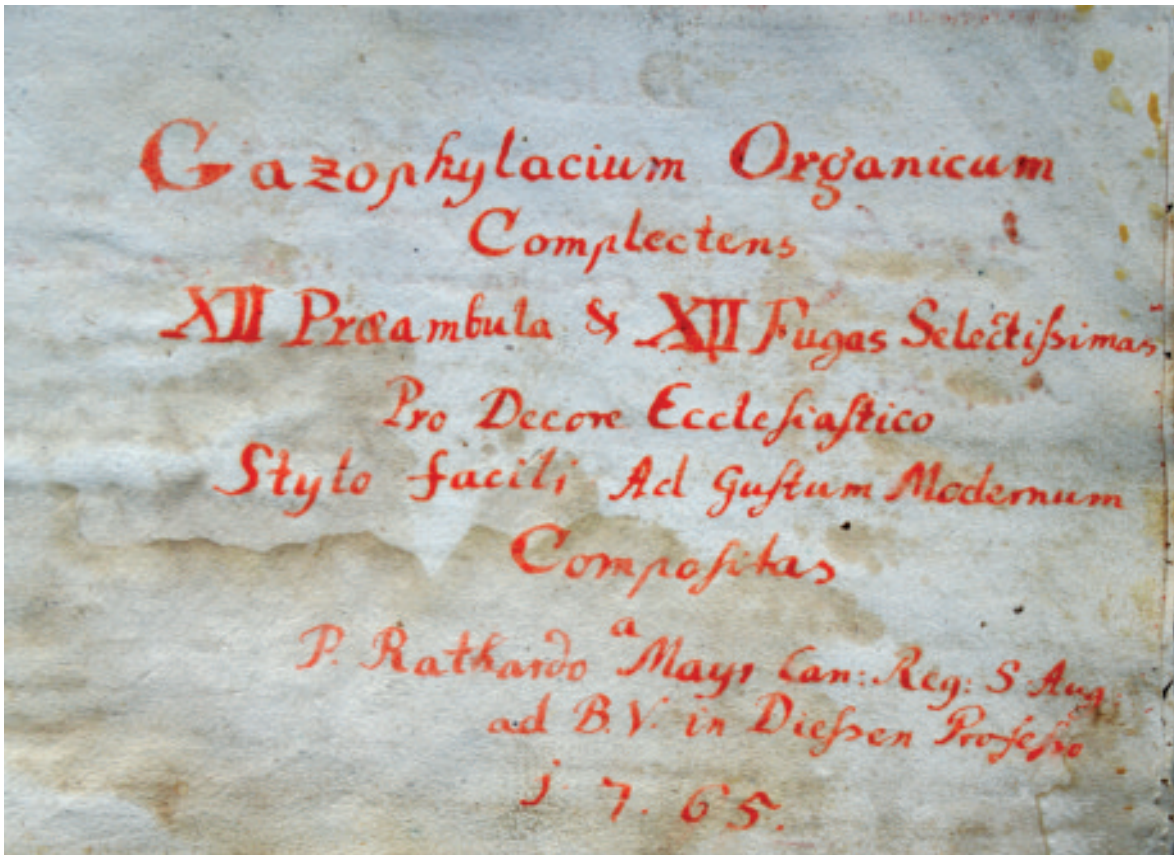 Gazophylacium Organicum
Complectens
XII Præambula & XII Fugas Selectiſsimas
Pro Decore Eccleſiaſtico
Stylo facili Ad Guſtum Modernum
Compoſitas
a
P. Rathardo Mayr Can: Reg: S. Aug:
ad B.V. in Dieſsen Profeſso
j. 7. 65.